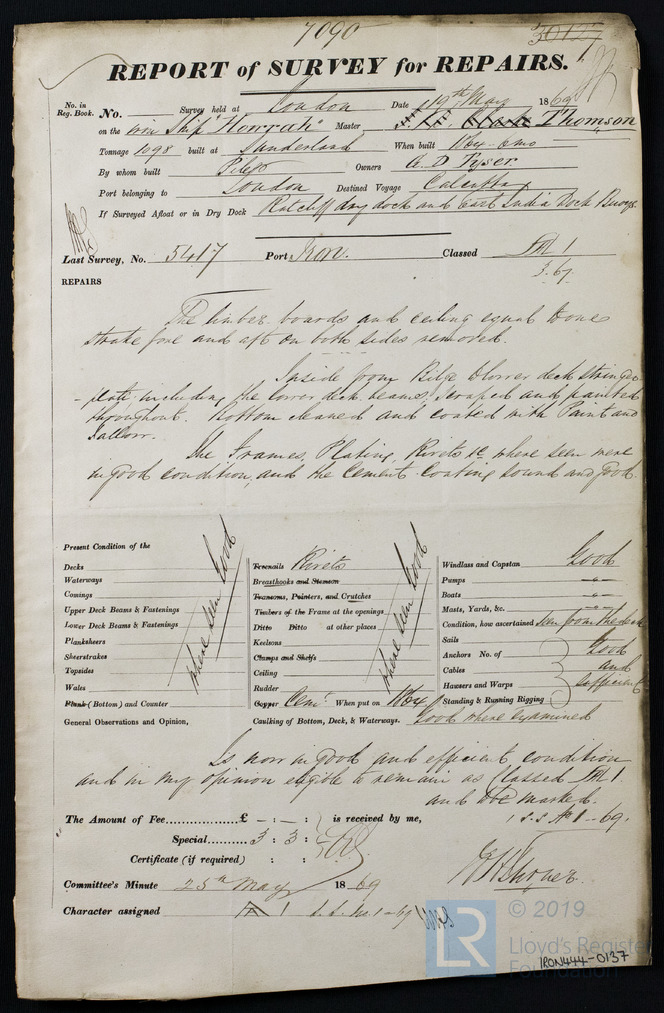 7090
30127
REPORT of SURVEY for REPAIRS.
No. in Reg. Book. No. Survey held at London Date 19th May 1869
on the Iron Ship "Howrah" Master Thomson
Tonnage 1098 built at Sunderland When built 1864
By whom built Pile Owners A. D. Tyser
Port belonging to London Destined Voyage Calcutta
If Surveyed Afloat or in Dry Dock Ratcliff dry dock and East India Dock
Last Survey, No. 5417 Port Iron. Classed A 1
3.67
REPAIRS
The limber boards and ceiling equal to one
strake fore and aft on both sides removed.
Inside from Bilge to lower deck stringer
plate including the lower deck beams scraped and painted
throughout. Bottom cleaned and coated with Paint and
Tallow.
The Frames, Plating, Rivets &c where seen were
in good condition, and the Cement coating sound and good.
Present Condition of the
Decks
Waterways
Comings
Upper Deck Beams & Fastenings
Lower Deck Beams & Fastenings
Planksheers
Sheerstrakes
Topsides
Wales
Plank (Bottom) and Counter
where seen Good
General Observations and Opinion,
Treenails Rivets
Breasthooks and Stemson
Transoms, Pointers, and Crutches
Timbers of the Frame at the openings
Ditto Ditto at other places
Keelsons
Clamps and Shelfs
Ceiling
Rudder
where seen Good
Copper Cemt When put on 1864
Caulking of Bottom, Deck, & Waterways. Good where examined
Windlass and Capstan Good
Pumps "
Boats "
Masts, Yards, &c. "
Condition, how ascertained seen from the deck
Sails
Anchors No. of
Cables
Hawsers and Warps
Standing & Running Rigging
Good
and
sufficient
Is now in good and efficient condition
and in my opinion eligible to remain as Classed A 1
and to be marked.
S.S No 1 - 69.
The Amount of Fee £ - : - : is received by me,
Special 3 : 3 :
Certificate (if required) : :
Committee's Minute 25th May 1869
Character assigned A 1 S.S. No. 1-69
LR
© 2019
Lloyd's Register
Foundation
IRON444-0137